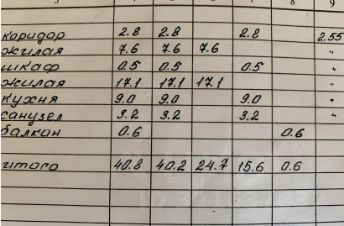 8 9
коридор 2.8 2.8 2.8 2.55
жилая 7.6 7.6 7.6 "
шкаф 0.5 0.5 0.5 "
жилая 17.1 17.1 17.1 "
кухня 9.0 9.0 9.0 "
санузел 3.2 3.2 3.2 "
балкон 0.6 0.6
итого 40.8 40.2 24.7 15.6 0.6